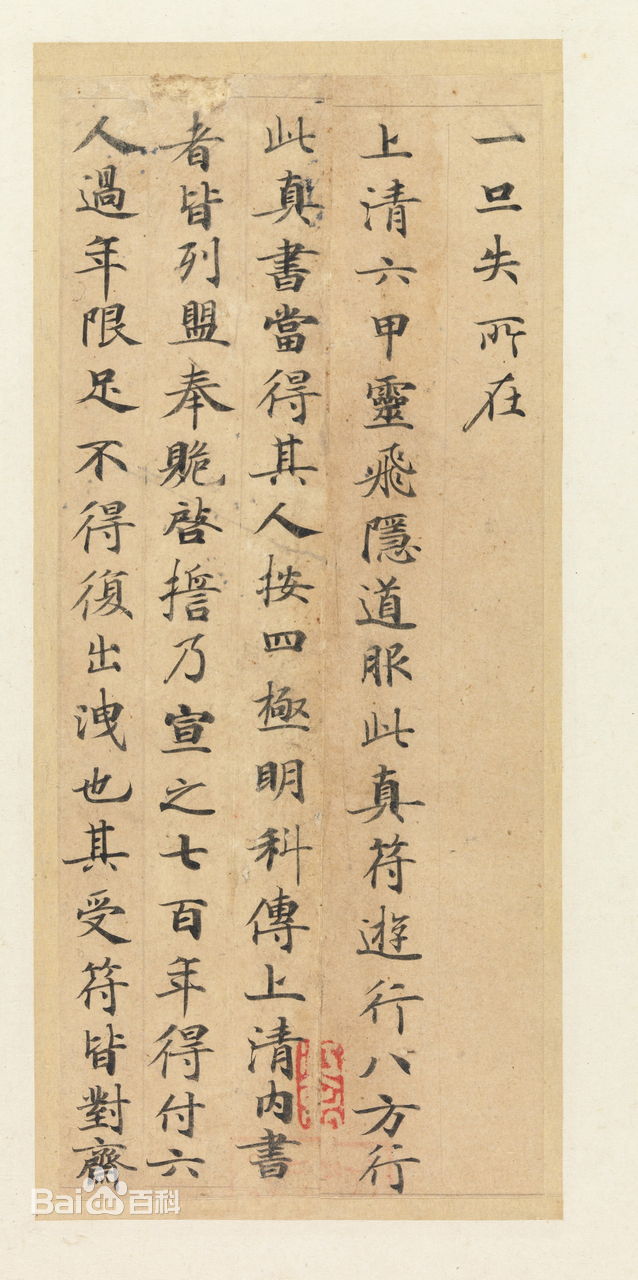 一旦失所在
上清六甲靈飛隱道服此真符遊行八方行
此真書當得其人按四極明科傳上清內書
者皆列盟奉贍啓誓乃宣之七百年得付六
人過年限足不得復出洩也其受符皆對齋
Bai百科